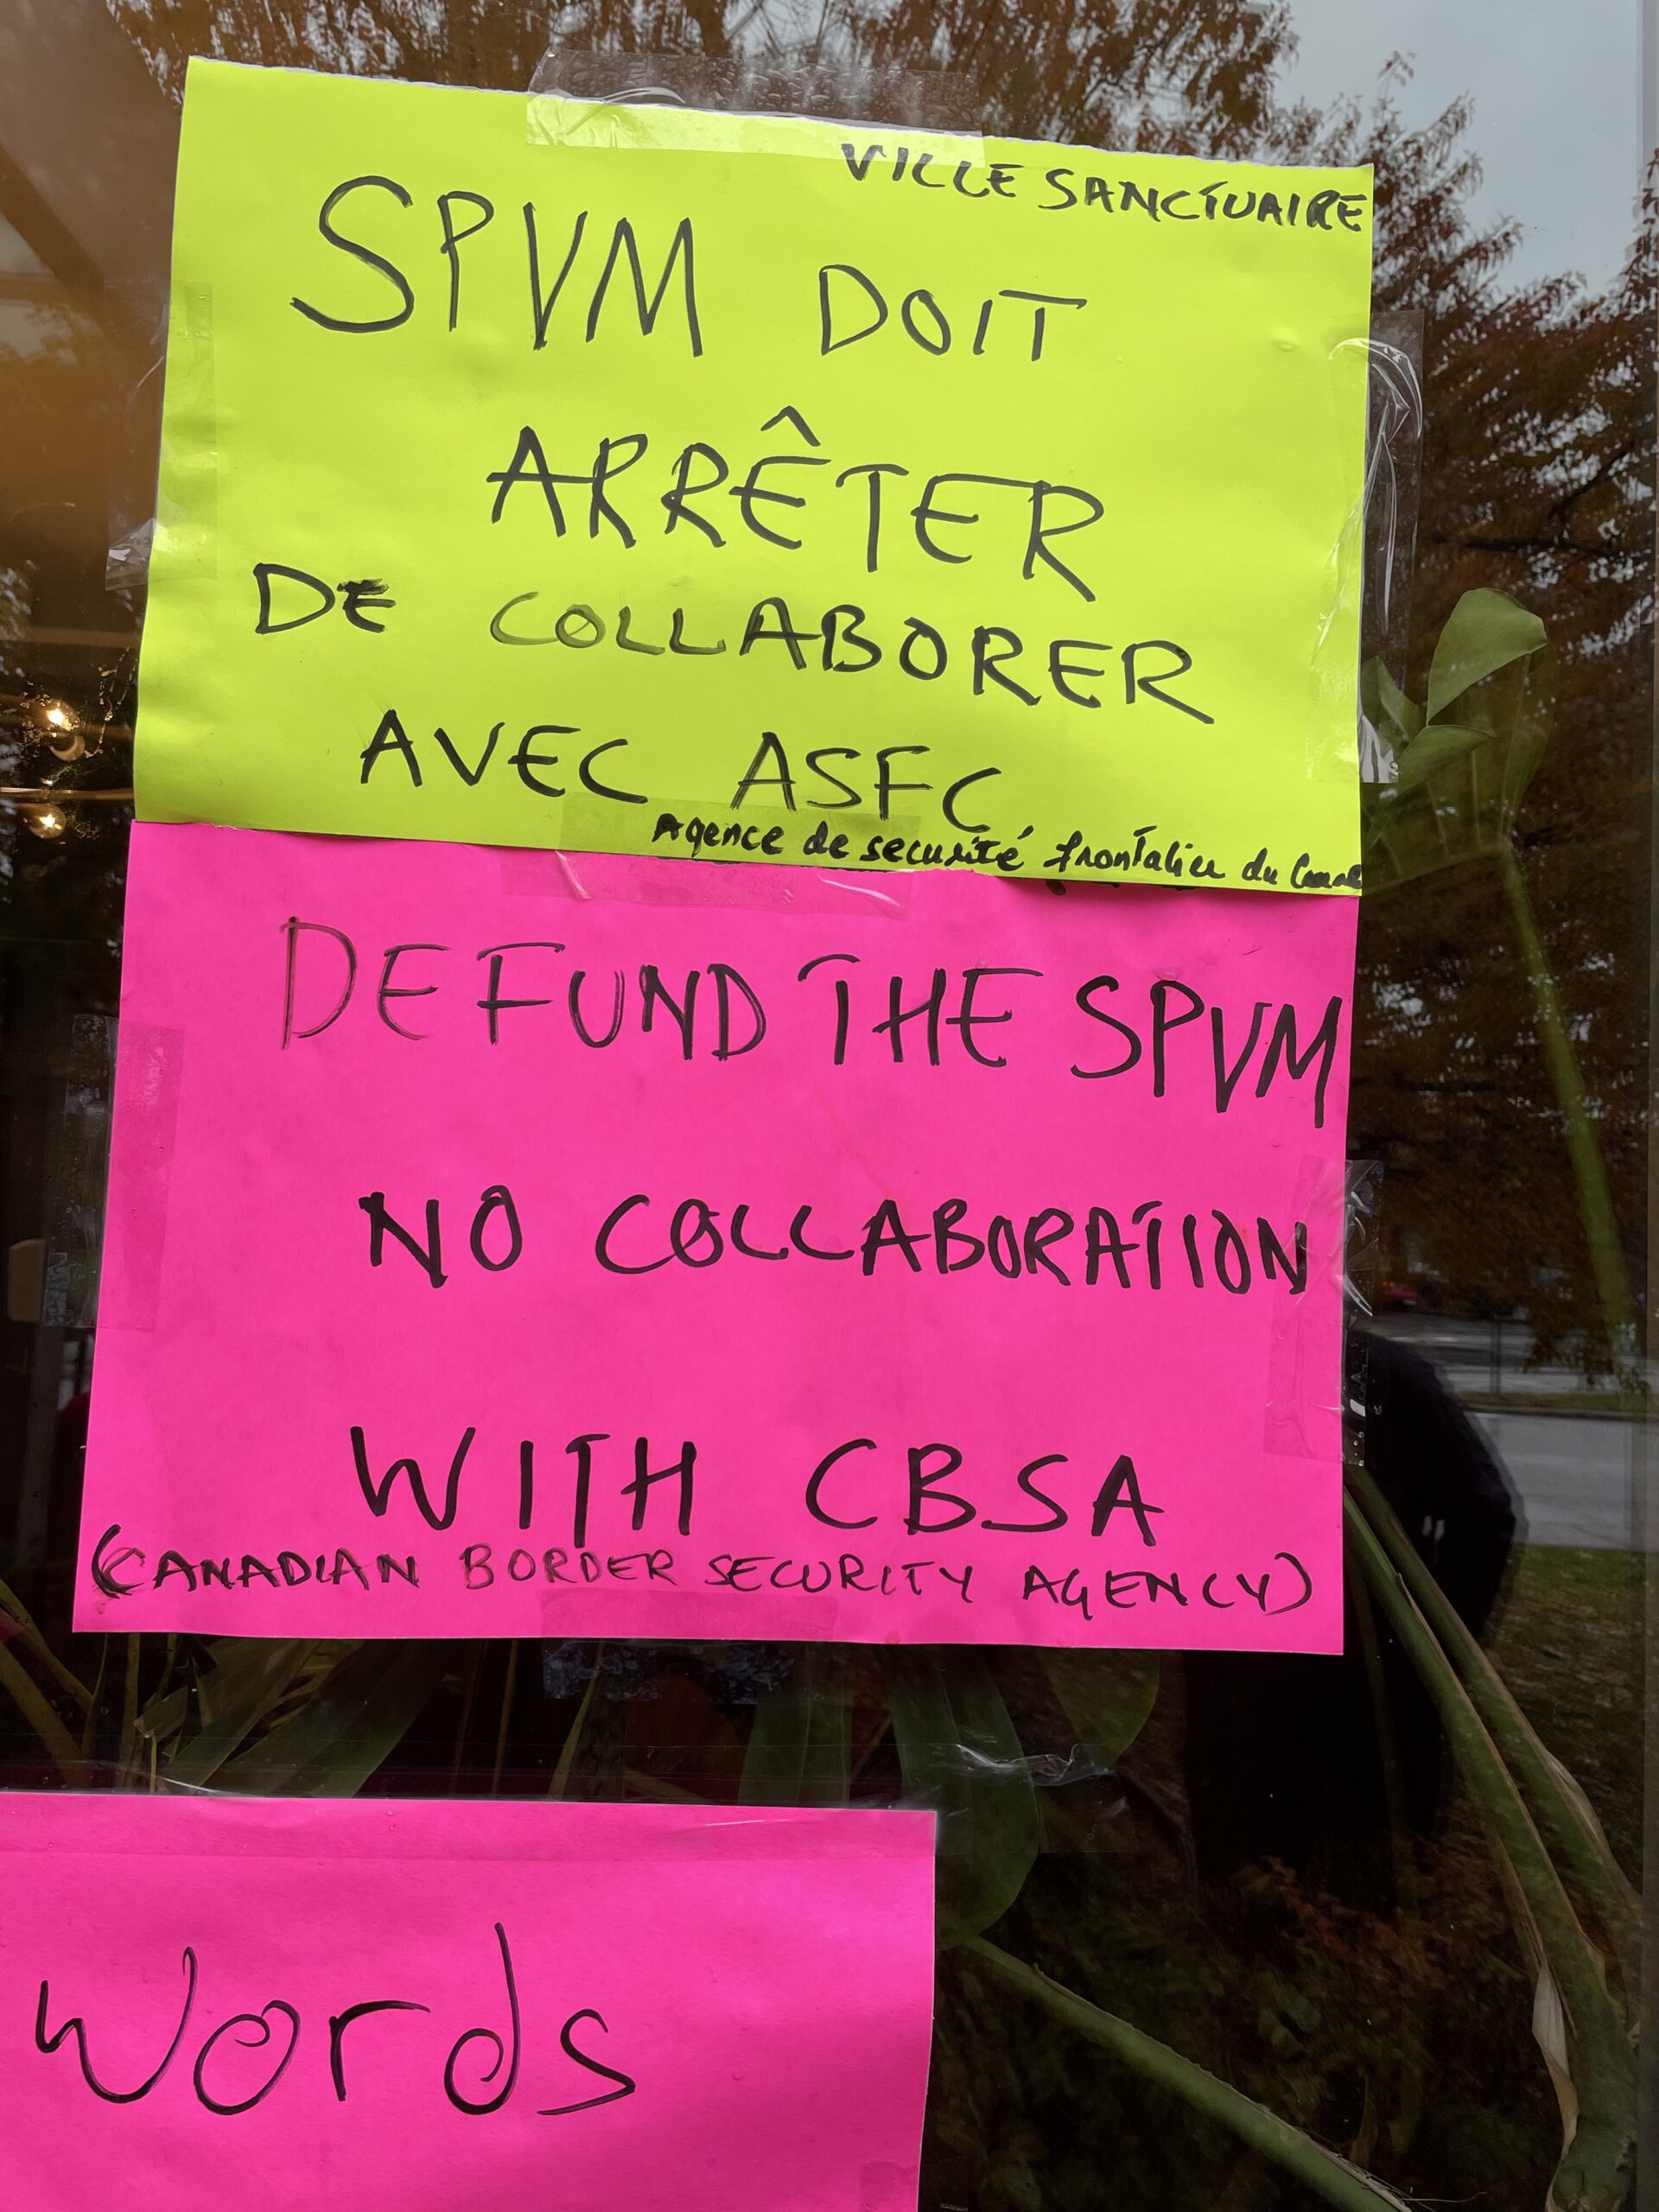 VILLE SANCTUAIRE
SPVM DOIT
ARRÊTER
DE COLLABORER
AVEC ASFC
Agence de securité frontalier du
DEFUND THE SPVM
NO COLLABORATION
WITH CBSA
(CANADIAN BORDER SECURITY AGENCY)
Words